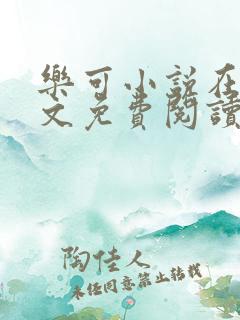 樂可小說在
文免費閱讀
陶佳人
未经同意禁止转载